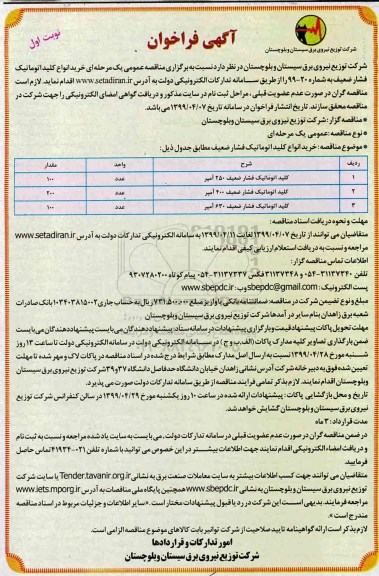 نوبت اول
آگهی فراخوان
شرکت توزیع نیروی برق سیستان و بلوچستان
شرکت توزیع نیروی برق سیستان و بلوچستان در نظر دارد نسبت به برگزاری مناقصه عمومی یک مرحله ای خرید انواع کلید اتوماتیک
فشار ضعیف به شماره ۲۰-۹۹ را از طریق سامانه تدارکات الکترونیکی دولت به آدرس www.setadiran.ir اقدام نماید. لازم است
مناقصه گران در صورت عدم عضویت قبلی، مراحل ثبت نام در سایت مذکور و دریافت گواهی امضای الکترونیکی را جهت شرکت در
مناقصه محقق سازند. تاریخ انتشار فراخوان در سامانه تاریخ ۱۳۹۹/۰۴/۰۷ می باشد.
* مناقصه گزار: شرکت توزیع نیروی برق سیستان وبلوچستان
* نوع مناقصه: عمومی یک مرحله ای
* موضوع مناقصه: خرید انواع کلید اتوماتیک فشار ضعیف مطابق جدول ذیل:
ردیف شرح واحد مقدار
۱ کلید اتوماتیک فشار ضعیف ۲۵۰ آمپر عدد ۱۰۰
۲ کلید اتوماتیک فشار ضعیف ۴۰۰ آمپر عدد ۲۰۰
۳ کلید اتوماتیک فشار ضعیف ۶۳۰ آمپر عدد ۱۰۰
مهلت و نحوه دریافت اسناد مناقصه:
متقاضیان می توانند از تاریخ ۱۳۹۹/۰۴/۰۷ لغایت ۱۳۹۹/۰۴/۱۱ به سامانه الکترونیکی تدارکات دولت به آدرس www.setadiran.ir
مراجعه و نسبت به دریافت استعلام ارزیابی کیفی اقدام نمایند.
اطلاعات تماس مناقصه گزار:
تلفن ۳۱۱۳۷۳۴۰-۰۵۴ و ۳۱۱۳۷۳۴۸-۰۵۴ فکس ۳۱۱۳۷۳۳۷-۰۵۴ پیام کوتاه ۹۳۰۷۲۸۰۲۰۰
پست الکترونیک: sbepdc@gmail.com وب: www.sbepdc.ir
مبلغ و نوع تضمین شرکت در مناقصه: ضمانتنامه بانکی یا واریز مبلغ ۷۳۱،۵۰۰،۰۰۰ ریال به حساب جاری بانک صادرات
شعبه برق زاهدان بنام سایر در آمدها شرکت توزیع نیروی برق سیستان وبلوچستان
مهلت تحویل پاکات پیشنهاد قیمت و بارگزاری پیشنهادات در سامانه ستاد: پیشنهاد دهندگان می بایست پیشنهاد دهندگان می بایست
ضمن بارگذاری تصاویر کلیه مدارک پاکات (الف، ب و ج) در سامانه الکترونیکی دولت در سامانه الکترونیکی دولت تا ساعت ۱۳ روز
شنبه مورخ ۱۳۹۹/۰۴/۲۸ نسبت به ارسال اصل مدارک مطابق شرایط درج شده در اسناد مناقصه در پاکات لاک و مهر شده تا مهلت
تعیین شده فوق به دبیرخانه شرکت آدرس نشانی زاهدان خیابان دانشگاه حدفاصل دانشگاه ۳۷ و ۳۹ شرکت توزیع نیروی برق سیستان
وبلوچستان اقدام نمایند. لازم بذکر تمامی فرایند مناقصه از طریق سامانه تدارکات دولت صورت می پذیرد.
تاریخ و محل بازگشایی پاکات: پیشنهادات ارائه شده در ساعت ۱۰ روز یکشنبه مورخ ۱۳۹۹/۰۴/۲۹ در سالن کنفرانس شرکت توزیع
نیروی برق سیستان وبلوچستان گشایش خواهد شد.
مدت قرارداد: ۳ ماه
در ضمن مناقصه گران در صورت عدم عضویت قبلی در سامانه تدارکات دولت، می بایست به سایت یاد شده مراجعه و نسبت به ثبت نام
و دریافت امضاء الکترونیکی اقدام نمایند جهت اطلاعات بیشتر در این خصوص می توانید با شماره تلفن ۰۲۱-۴۱۹۳۴ تماس حاصل
فرمایید
متقاضیان می توانند جهت کسب اطلاعات بیشتر به سایت معاملات صنعت برق به نشانی Tender.tavanir.org.ir یا سایت شرکت
توزیع نیروی برق سیستان وبلوچستان به نشانی www.sbepdc.ir همچنین پایگاه ملی مناقصات به آدرس www.iets.mporg.ir
مراجعه فرمایند. بدیهی است این شرکت در رد یا قبول پیشنهادات مختار است. «سایر اطلاعات و جزئیات مربوط در اسناد مناقصه
مندرج است».
لازم بذکر است ارائه گواهینامه تایید صلاحیت از شرکت توانیر بابت کالاهای موضوع مناقصه الزامی است.
امور تدارکات و قراردادها
شرکت توزیع نیروی برق سیستان وبلوچستان